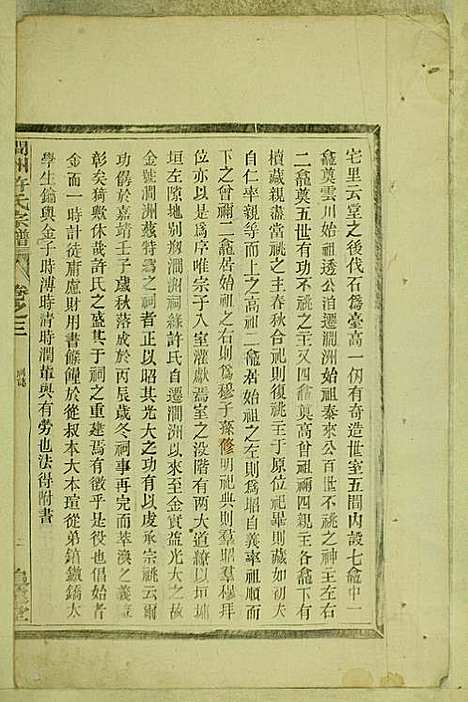 宅里云堂之後伐石爲臺高一仞有奇造世室五間内設七龕中一
龕奠雲川始祖透公泊遷澗洲始祖泰來公百世不祧之神主左右
二龕奠五世有功不祧之主又四龕奠高曾祖禰四親主各龕下有
櫝藏親盡當祧之主春秋合祀則復祧主于原位祀畢則藏如初夫
自仁率親等而上之高祖二龕居始祖之左則爲昭自義率祖順而
下之曾禰二龕居始祖之右則爲穆子孫修明祀典則羣昭羣穆拜
位亦以是爲序唯宗子入室灌獻焉室之没階有两大道繚以垣墉
垣左隙地别剏澗洲祠緣許氏自遷澗洲以來至金實益光大之故
金號澗洲兹特爲之祠者正以昭其光大之功有以虔承宗祧云爾
功僝於嘉靖壬子歲秋落成於丙辰歲冬祠事再完而萃渙之義益
彰矣猗歟休哉許氏之盛其于祠之重建焉有徵乎是役也倡始者
金而一時計徒庸慮財用書餱餫於從叔本大本瑄從弟鎮鐵鐈大
學生鑰與金子時溥時清時潤輩與有勞也法得附書
澗州許氏宗譜
卷之三